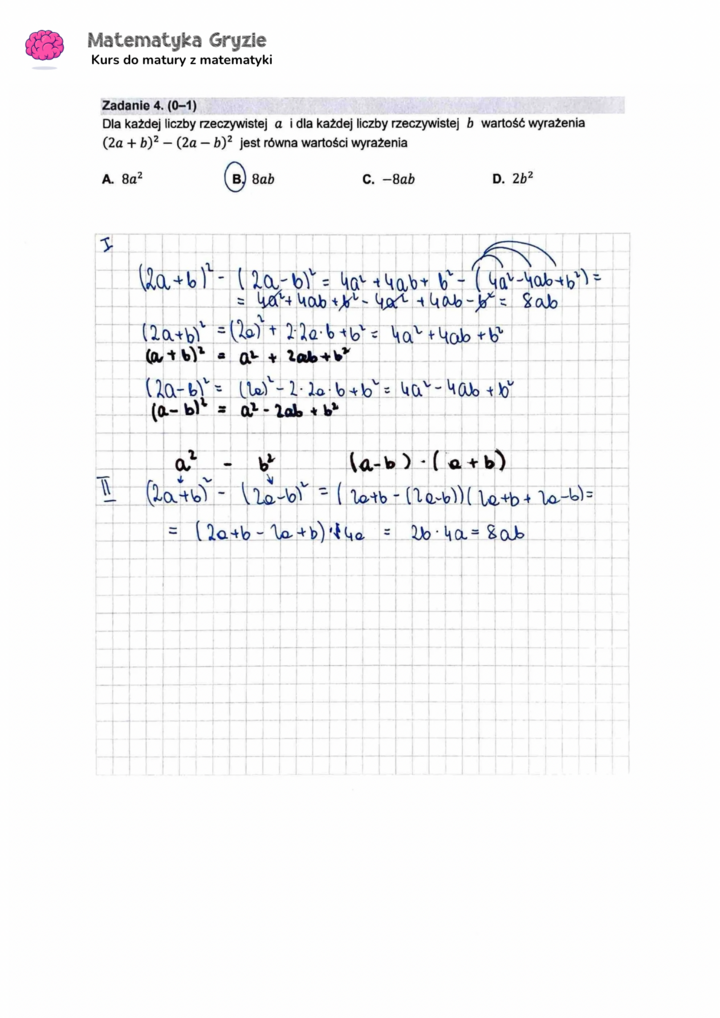 Matematyka Gryzie
Kurs do matury z matematyki
Zadanie 4. (0–1)
Dla każdej liczby rzeczywistej a i dla każdej liczby rzeczywistej b wartość wyrażenia
(2a + b)² − (2a − b)² jest równa wartości wyrażenia
A. 8a² B. 8ab C. −8ab D. 2b²
I
(2a+b)² - (2a-b)² = 4a² + 4ab + b² - (4a²-4ab+b²) =
= 4a² + 4ab + b² - 4a² + 4ab - b² = 8ab
(2a+b)² = (2a)² + 2·2a·b + b² = 4a² + 4ab + b²
(a + b)² = a² + 2ab + b²
(2a-b)² = (2a)² - 2·2a·b + b² = 4a² - 4ab + b²
(a - b)² = a² - 2ab + b²
a² - b² (a-b)·(a+b)
II (2a+b)² - (2a-b)² = (2a+b - (2a-b))(2a+b+2a-b) =
= (2a+b-2a+b)·4a = 2b·4a = 8ab